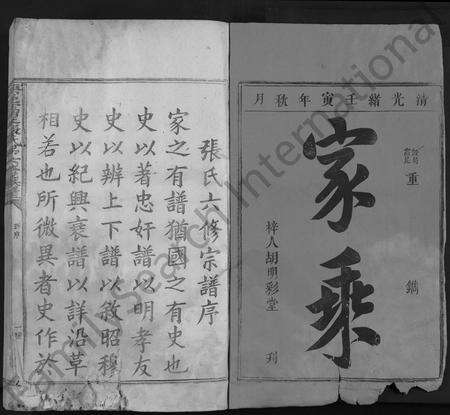 清光緒壬寅年秋月
重鐫
家乘
梓人胡明彩堂刊
張氏六修宗譜序
家之有譜猶國之有史也
史以著忠奸譜以明孝友
史以辨上下譜以敘昭穆
史以紀興衰譜以詳沿革
相若也所微異者史作於